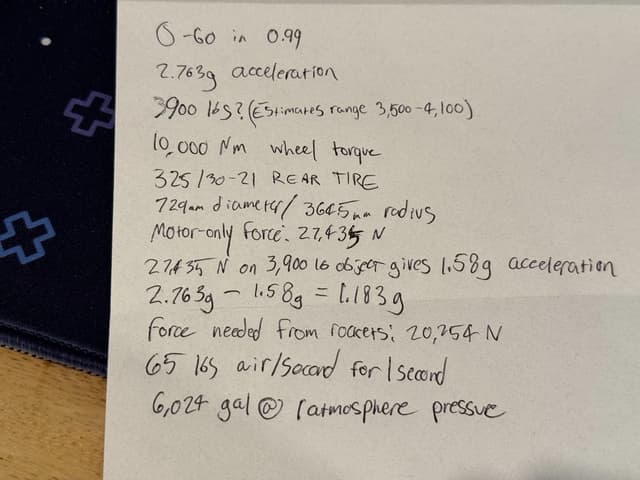 0-60 in 0.99
2.763g acceleration
3900 lbs? (Estimates range 3,500-4,100)
10,000 Nm wheel torque
325/30-21 REAR TIRE
729mm diameter/ 364.5mm radius
Motor-only force: 27,435 N
27,435 N on 3,900 lb object gives 1.58g acceleration
2.763g - 1.58g = 1.183g
Force needed from rockets: 20,254 N
65 lbs air/second for 1 second
6,024 gal @ 1 atmosphere pressure